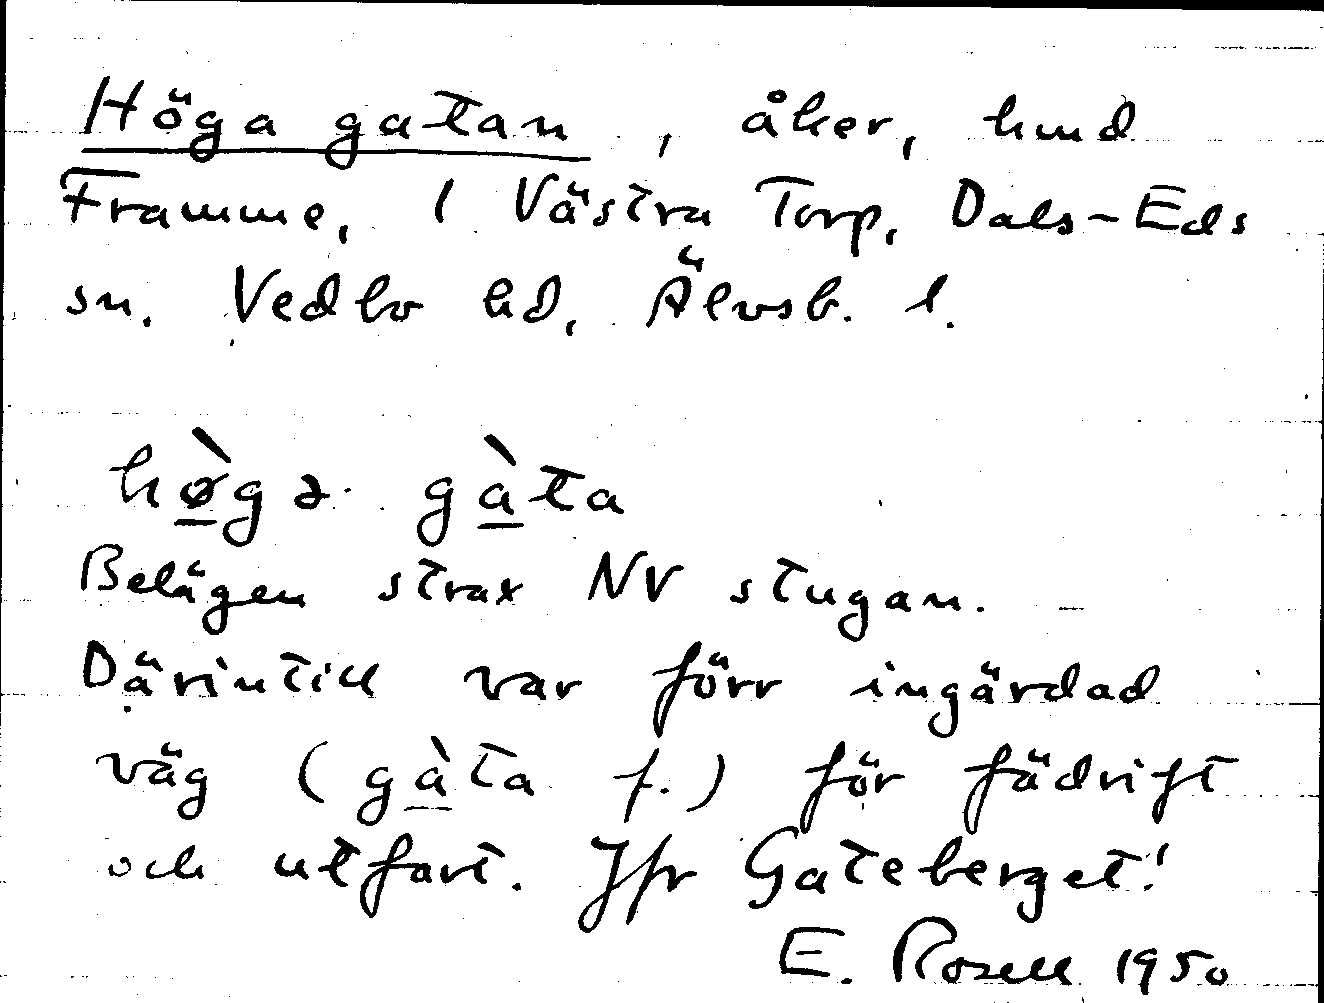 Höga gatan, åker, hmd
Framme, 1 Västra Torp, Dals-Eds
sn. Vedbo hd, Älvsb. l.
hø̀gə gàta
Belägen strax NV stugan.
Därintill var förr ingärdad
väg (gàta f.) för fädrift
och utfart. Jfr Gateberget!
E. Rosell 1950